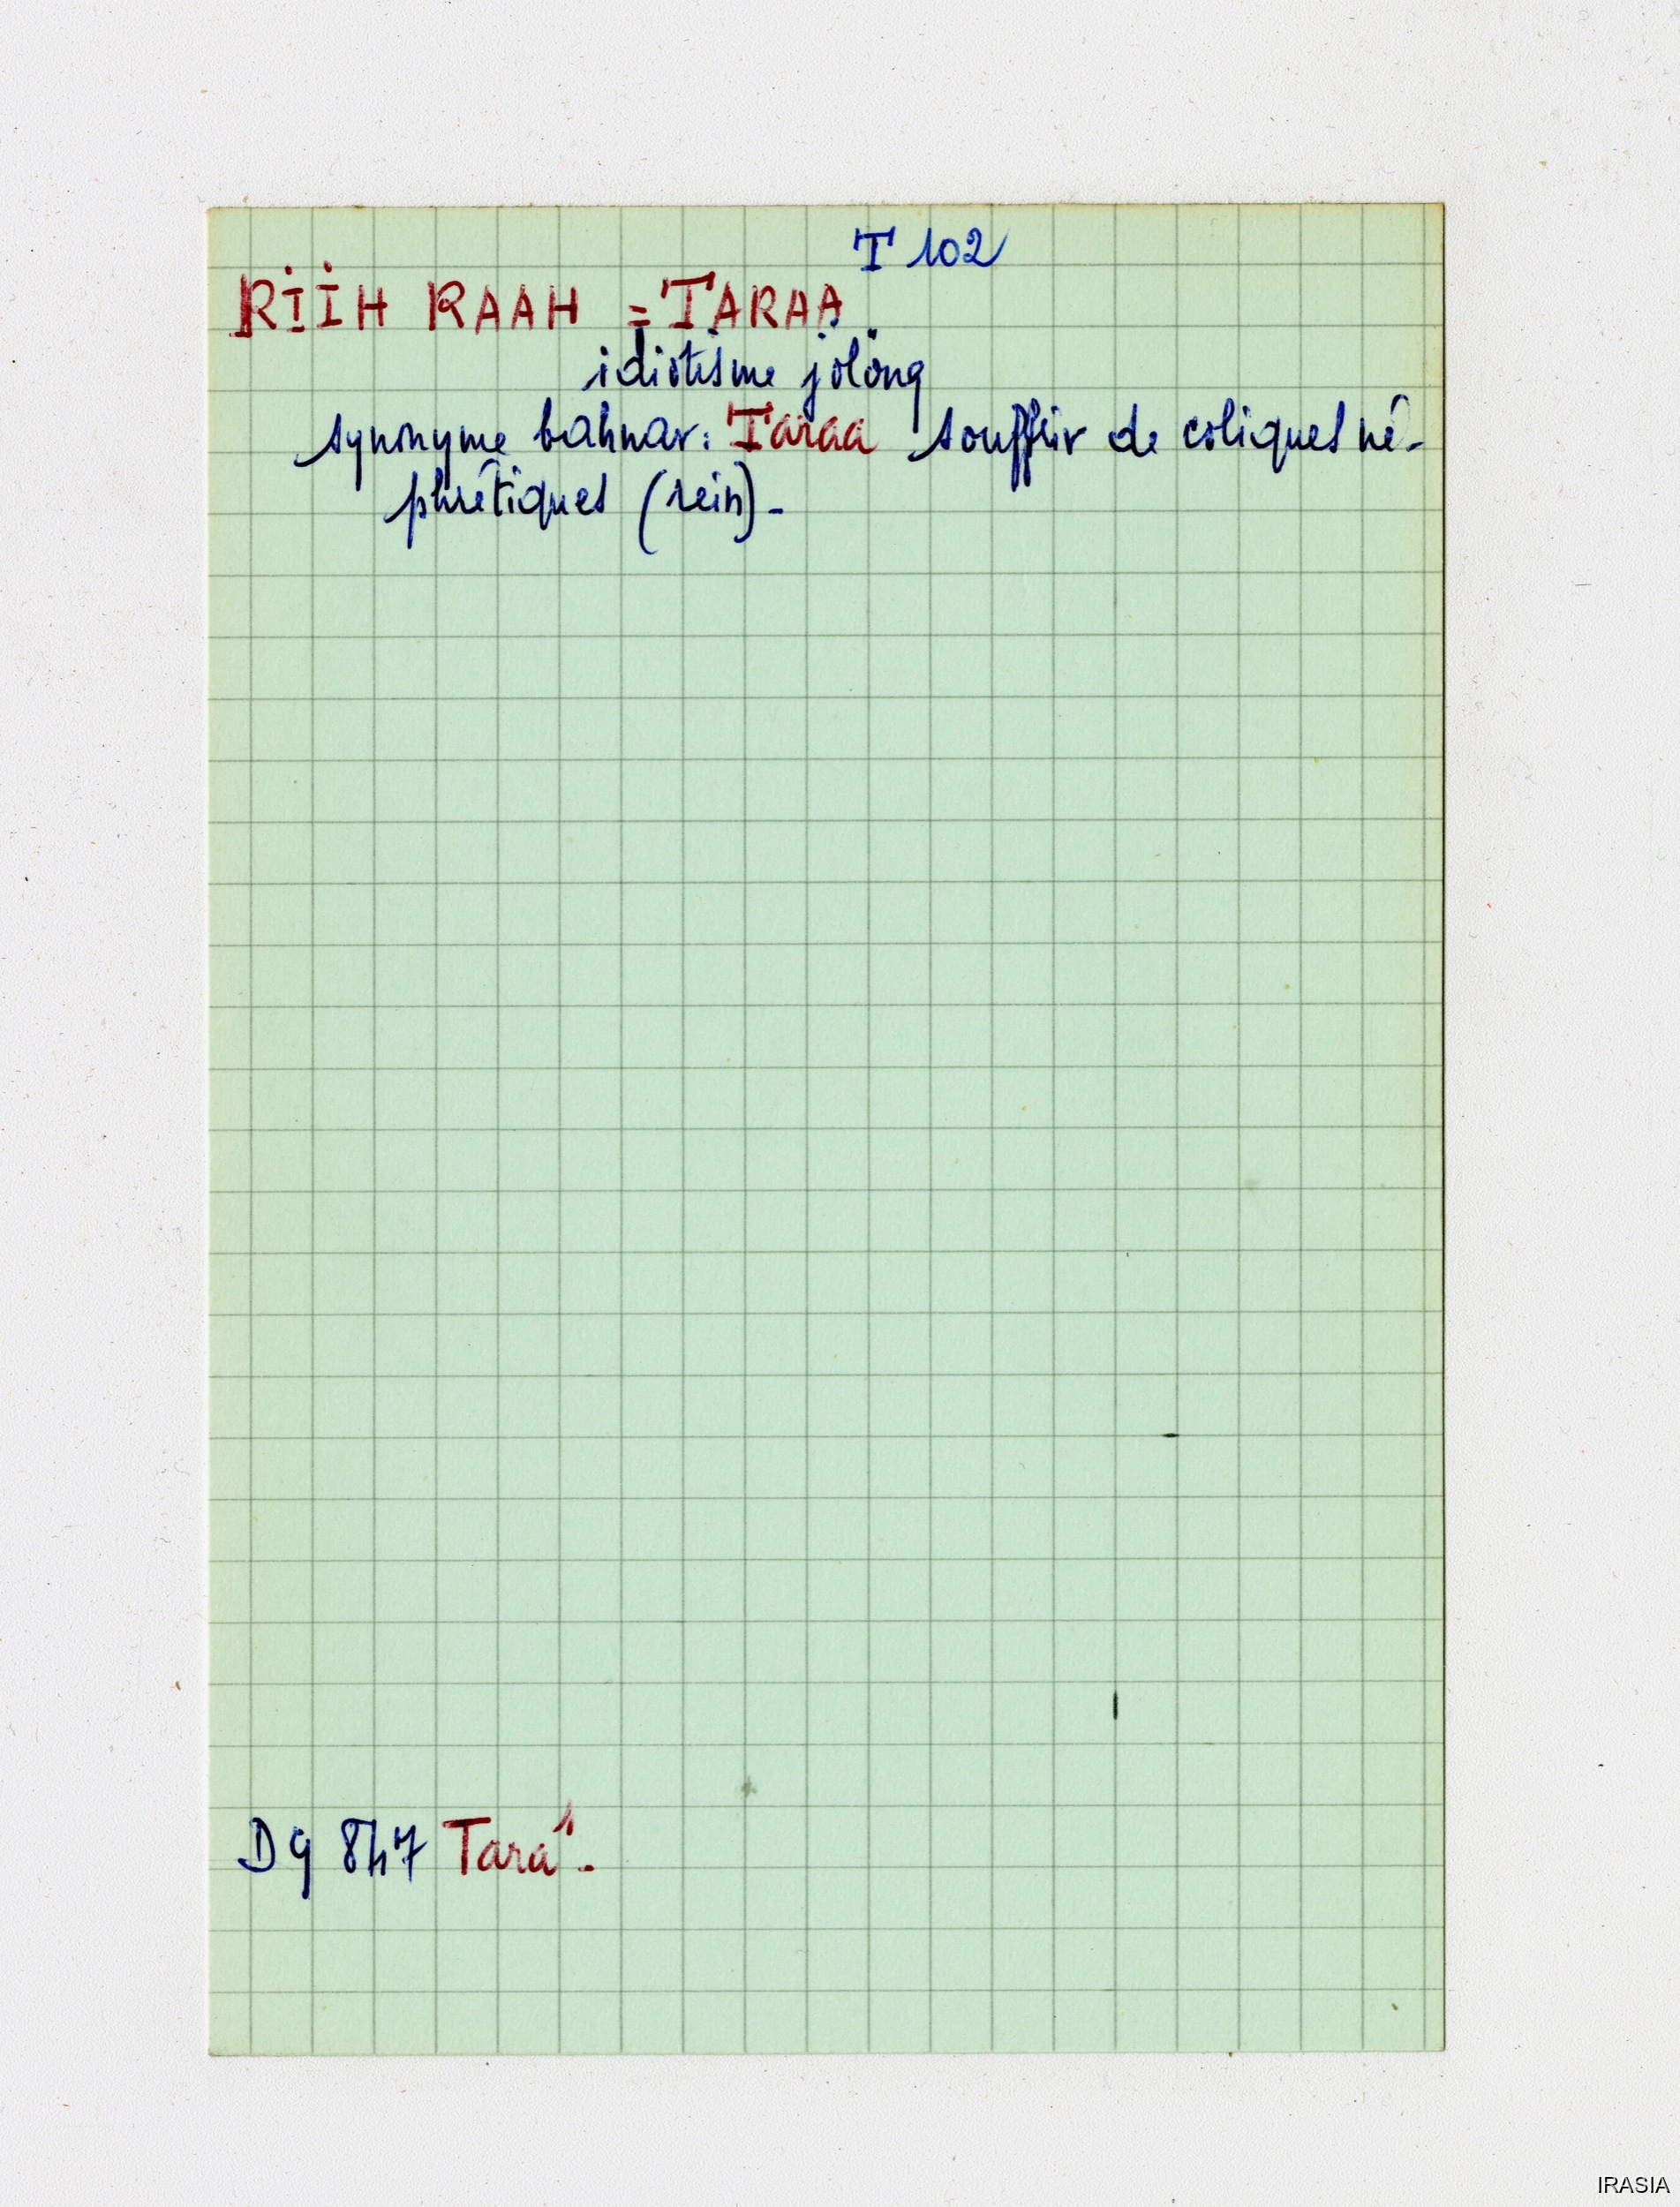 T 102
RİİH RAAH = TARAA
idiotisme jolöng
synonyme bahnar: Taraa souffrir de coliques né-
phrétiques (rein)-
Dg 847 Tará-
IRASIA